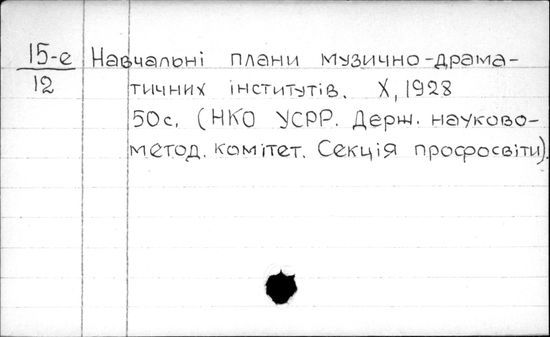 15-е Навчальні плани музично-драма-
12 тичних інститутів. Х, 1928
50с. (НКО УСРР. Держ. науково-
метод. комітет. Секція профосвіти).